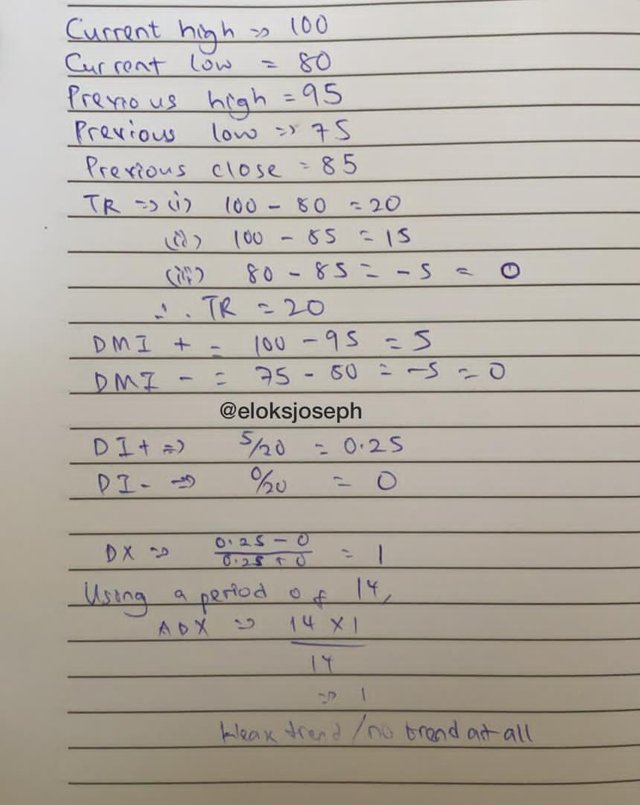 Current high => 100
Current low = 80
Previous high = 95
Previous low => 75
Previous close = 85
TR => (i) 100 - 80 = 20
(ii) 100 - 85 = 15
(iii) 80 - 85 = -5 = 0
∴ TR = 20
DMI + = 100 - 95 = 5
DMI - = 75 - 80 = -5 = 0
@eloksjoseph
DI+ => 5/20 = 0.25
DI- => 0/20 = 0
DX => 0.25 - 0 / 0.25 + 0 = 1
Using a period of 14,
ADX => 14 X 1
14
=> 1
Weak trend/no trend at all